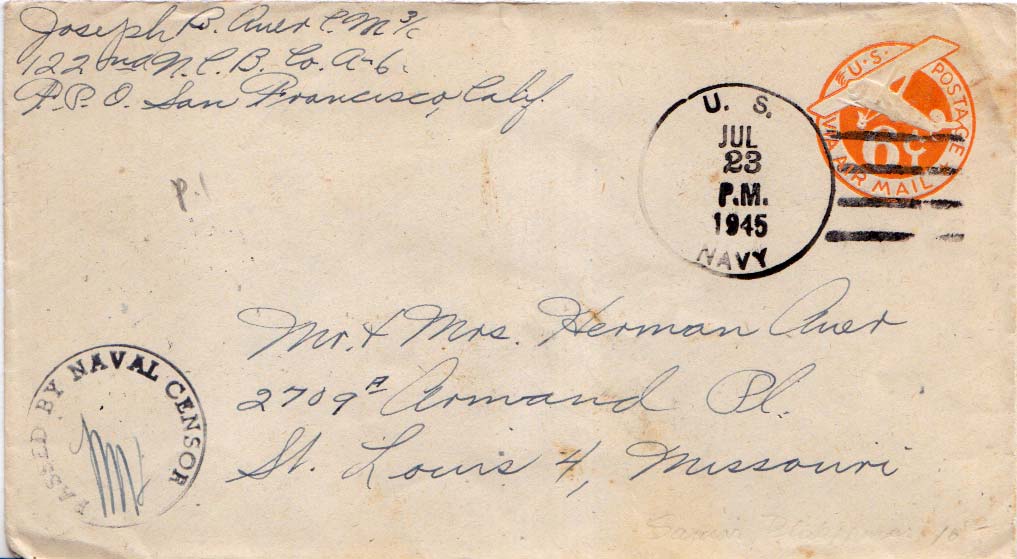 Joseph B. Auer C.M 3/c
122nd N.C.B. Co. A-6.
F.P.O. San Francisco, Calif.
U.S. POSTAGE
6¢
VIA AIR MAIL
U. S.
JUL
23
P.M.
1945
NAVY
P.
Mr. & Mrs. Herman Auer
2709A Armand Pl.
St. Louis 4, Missouri
PASSED BY NAVAL CENSOR